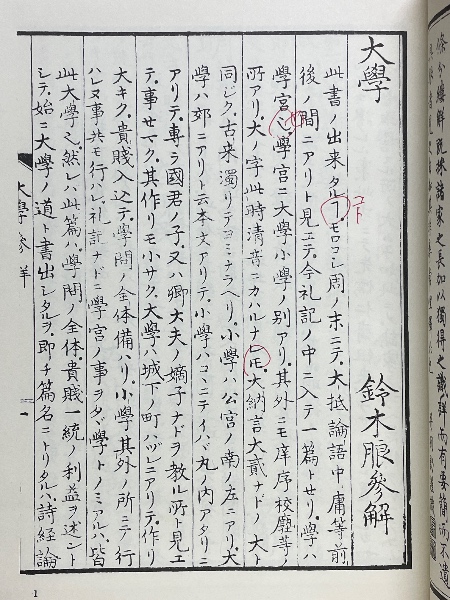 條分縷解既採諸家之長加以獨得之識確而有要簡而不遺
大學 鈴木脤參解
此書ノ出来タルヿモロコシ周ノ末ニテ大抵論語中庸等前
コト
後ノ間ニアリト見エテ今礼記ノ中ニ入テ一篇トセリ學ハ
學宮也學宮ニ大學小學ノ別アリ其外ニモ庠序校廱等ノ
所アリ大ノ字此時清音ニカハルナレ𪜈大納言大貳ナドノ大ト
同ジク古来濁リテヨミナラヘリ小學ハ公宮ノ南ノ左ニアリ大
學ハ郊ニアリト云本文アリテ小學ハコヽニテイハヾ丸ノ内アタリニ
アリテ專ラ國君ノ子又ハ卿大夫ノ嫡子ナドヲ教ル所ト見エ
テ事セマク其作リモ小サク大學ハ城下ノ町ハヅレニアリテ作リ
大キク貴賤入込テ學問ノ全体備ハリ小學其外ノ所ニテ行
ハレヌ事共モ行ハレ礼記ナドニ學宮ノ事ヲタヾ學トノミアルハ皆
此大學也然レハ此篇ハ學問ノ全体貴賤一統ノ利益ヲ述ント
シテ始ニ大學ノ道ト書出シタルヲ即チ篇名ニトリタルハ詩経論
大學參解
一
1